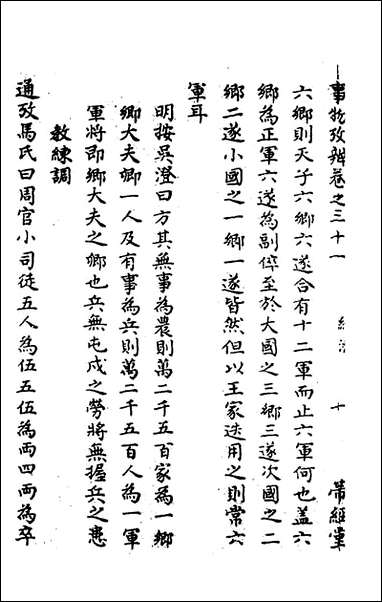 事物攷辨卷之三十一 經濟 十 帶經堂
六鄉則天子六鄉六遂合有十二軍而止六軍何也蓋六
鄉為正軍六遂為副倅至於大國之三鄉三遂次國之二
鄉二遂小國之一鄉一遂皆然但以王家迭用之則常六
軍耳
明按吳澄曰方其無事為農則萬二千五百家為一鄉
鄉大夫卿一人及有事為兵則萬二千五百人為一軍
軍將即鄉大夫之卿也兵無屯戍之勞將無握兵之患
教練調
通攷馬氏曰周官小司徒五人為伍五伍為両四両為卒